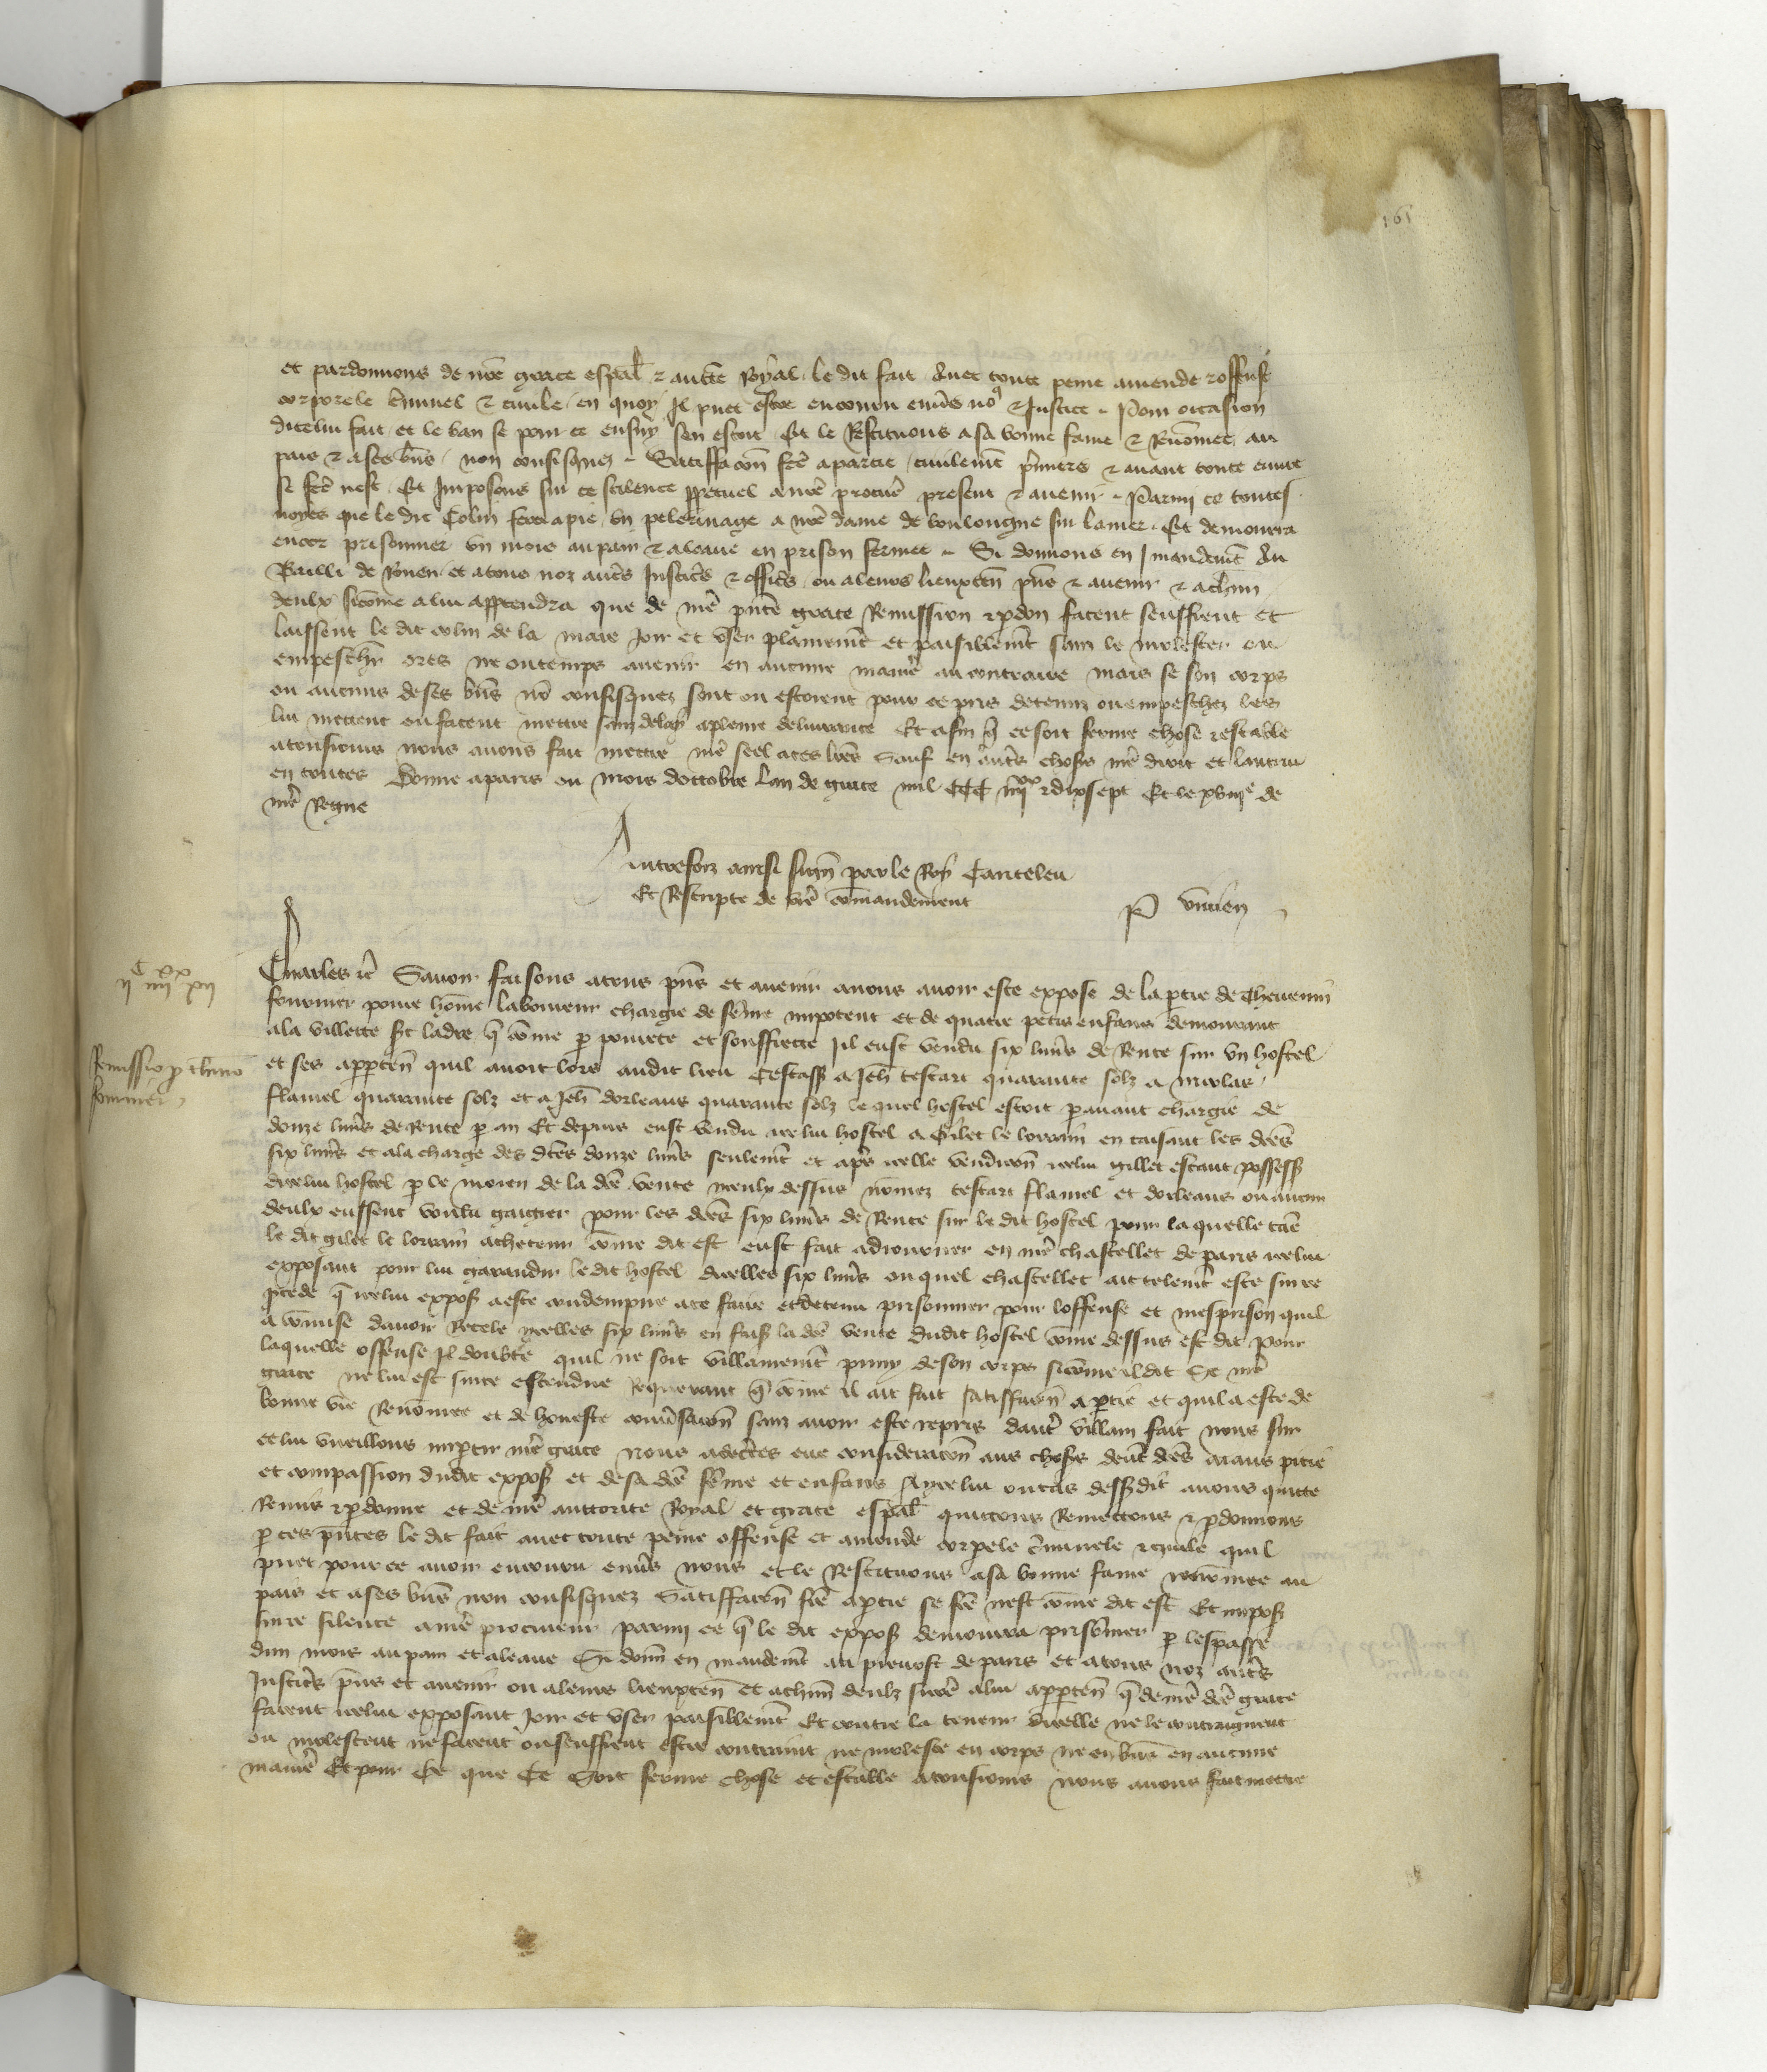 161
et pardonnons de nre grace espal & aucte Royal le dit fait Avec toute peine amende & offense
corporele criminel & civile en quoy Il puet estre encouru envs nos & Justice Pour occasion
dicelui fait et le ban se pour ce ensuy sen estoit Et le Restituons a sa bonne fame & Renomee au
pais & a ses biens non confisquez Satiffacon fcte a partie civilemt premiers & avant toute euvre
se fcte nest Et Imposons sur ce scilence perpetuel a nre procur present & avenir Parmy ce toutes
voyes que le dit Colin fera a pie un pelerinage a nre dame de bouloigne sur la mer Et demourra
encor prisonnier un mois au pain & a leaue en prison fermee Si donnons en mandemt Au
Bailli de Rouen et a tous noz autrs Justicrs & officrs ou a leurs lieuxten pns & avenir & a chun
deulx sicome a lui appartendra que de nre pnte grace Remission & pardon facent seuffrent et
laissent le dit colin de la mare Joir et user plainemt et paisiblemt sanz le molester ou
empeschr ores ne ou temps avenir en aucune manie au contraire mais se son corps
ou aucuns de ses biens no confisquez sont ou estoient pour ce pris detenuz ou empeschez les
lui mettent ou facent mettre sanz delay a pleine delivrance Et afin que ce soit ferme chose & estable
a tousjours nous avons fait mettre nre seel a ces lres Sauf en autrs choses nre droit et lautrui
en toutes Donne a paris ou mois doctobre Lan de grace mil CCC iiiixx & dixsept Et le xviiie de
nre Regne
Autrefoiz ainsi signe par le Roy Canteleu
Et Rescripte de vre comandement
P vivien
iic iiiixx xii
Charles etc Savoir faisons a tous pns et avenir a nous avoir este expose de la partie de Thevenin
fournier povre home laboureur chargie de feme impotent et de quatre petis enfans demourant
a la villette st ladre que come par povrete et souffrette Il eust vendu six livres de Rente sur un hostel
Remissio pro thevno
fournier
et ses appten quil avoit lors audit lieu Cestass a Jeh testart quarante solz a nicolas
flamel quarante solz et a Jeh dorleans quarante solz le quel hostel estoit par avant chargie de
douze livres de Rente par an Et depuis eust vendu icelui hostel a Gilet le lorrain en taisant les dces
six livres et a la charge des dtes douze livres seulemt et aprs icelle vendicon icelui gillet estant possess
dicelui hostel par le moien de la dce vente iceulx dessus nomez testart flamel et dorleans ou aucun
deulx eussent voulu gaigier pour les dces six livres de Rente sur le dit hostel pour la quelle cause
le dit gilet le lorrain acheteur come dit est eust fait adjourner en nre chastellet de paris icelui
exposant pour lui garandir le dit hostel dicelles six livres ou quel chastellet ait telemt este sur ce
procede que icelui expos a este condempne a ce faire et detenu prisonnier pour loffense et mesprison quil
a comise davoir Recele icelles six livres en fais la dce vente dudit hostel come dessus est dit Pour
laquelle offense Il doubte quil ne soit villainemt puny de son corps sicome il dit Se nre
grace ne lui est sur ce estendue Requerant que come il ait fait satiffacon a partie et quil a este de
bonne vie Renomee et de honeste conversacon sanz avoir este repris dautre villain fait nous sur
ce lui vueillons impartir nre grace Nous adcertes eue consideracon aus choses devt dces aians pitie
et compassion dudit expos et de sa dce feme et enfans A ycelui ou cas dessdit avons quitte
Remis & pardonne et de nre auctorite Royal et grace espal quictons Remettons & pardonnons
par ces pntes le dit fait avec toute peine offense et amende corporele criminele & civile quil
puet pour ce avoir encouru envs nous et le Restituons a sa bonne fame renomee au
pais et a ses biens non confisquez Satiffacon fce a partie se fce nest come dit est Et impos
sur ce silence a nre procureur parmy ce que le dit expos demourra prisonnier par lespasse
dun mois au pain et a leaue Si donn en mandemt au prevost de paris et a tous noz autrs
Justicrs pns et avenir ou a leurs lieuxten et a chun deulz sicome a lui apparten que de nre dce grace
facent icelui exposant Joir et user paisiblemt Et contre la teneur dicelle ne le contraignent
ou molestent ne facent ou seuffrent estre contraint ne moleste en corps ne en biens en aucune
manie Et pour Ce que Ce Soit ferme chose et estable a tousjours nous avons fait mettre